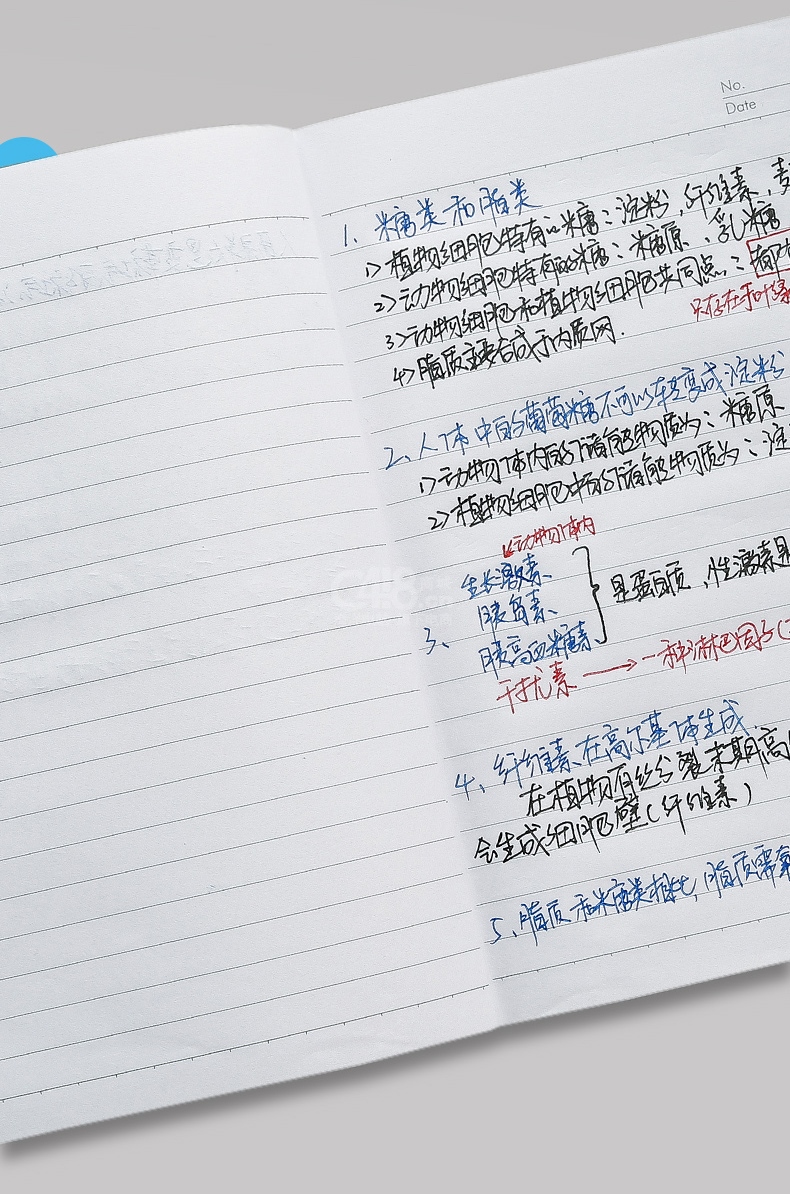 No.
Date
1. 糖类和脂类
1> 植物细胞特有的糖：淀粉，纤维素，麦
2> 动物细胞特有的糖：糖原、乳糖
3> 动物细胞和植物细胞共同点：都
只存在于叶绿
4> 脂质主要合成于内质网.
2、人体中的葡萄糖不可以转变成淀粉
1> 动物体内的储能物质为：糖原
2> 植物细胞中的储能物质为：淀
动物体内
3、
生长激素、
胰岛素、
胰高血糖素、
是蛋白质、性激素是
干扰素 → 一种淋巴因子(
4、纤维素在高尔基体生成
在植物有丝分裂末期高
会生成细胞壁(纤维素)
5、脂质和糖类相比，脂质需氧